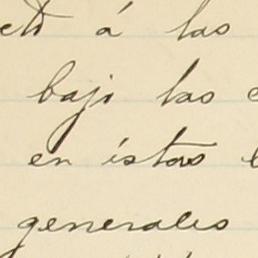 á las
bajo las
en éstas
generales